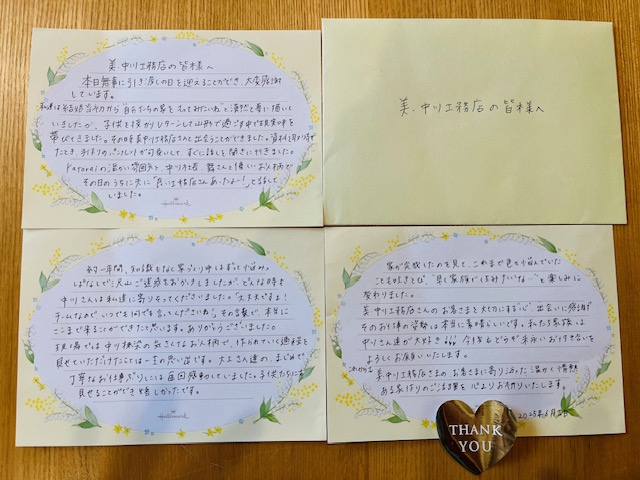 美.中川工務店の皆様へ
本日無事に引き渡しの日を迎えることができ、大変感謝
しています。
私達は結婚当初から"自分たちの家をもってみたいね"と漠然と夢に描いて
いましたが、子供を授かりUターンした山形で過ごす中で現実味を
帯びてきました。その時美中川工務店さんと出会うことができました。資料を取り寄せ
たとき、手作りのパンフレットが可愛いくて、すぐに話しを聞きに行きました。
の温かい雰囲気と、中川社長 さんと優しいお人柄で
その日のうちに夫に「良い工務店さんあったよー!」と話して
いました。
Hallmark
美.中川工務店の皆様へ
約一年間、知識もなく家づくり中はずっと悩み。
しばなしで、沢山ご迷惑をおかけしましたが、どんな時も
中川さんは私達に寄りそってくださいました。"大丈夫ですよ!
チームなので いつでも何でも言ってくださいね"その言葉で、本当に
ここまで来ることができたと思います。ありがとうございました。
現場では中川棟梁の気さくなお人柄で、作られていく過程を
見せていただけたことは一生の思い出です。大工さん達の、まじめで
丁寧なお仕事ぶりには毎回感動していました。子供たちにも
見せることができ嬉しかったです。
Hallmark
家が完成したのを見て、これまで色々悩んでいた
ことも吹きとび、"早く家族でくらしみたいな…"と楽しみに
変わりました。
美.中川工務店さんのお客さまを大切にする"心" 出会いに感謝
そのお仕事の姿勢は本当に素晴らしいです。私たち家族は
中川さん達が大好き 今後もどうぞ末永いおつき合いを
よろしくお願いいたします。
これからも
美中川工務店さまの お客さまに寄り添った温かく情熱
ある家作りのご活躍を心よりお祈りいたします。
2025年6月
THANK
YOU